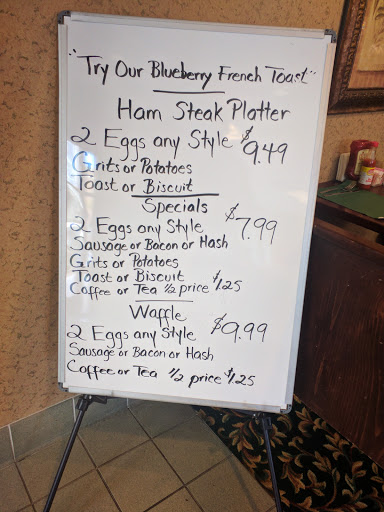 "Try Our Blueberry French Toast"
Ham Steak Platter
2 Eggs any Style $9.49
Grits or Potatoes
Toast or Biscuit
Specials
2 Eggs any Style $7.99
Sausage or Bacon or Hash
Grits or Potatoes
Toast or Biscuit
Coffee or Tea ½ price $1.25
Waffle
2 Eggs any Style $9.99
Sausage or Bacon or Hash
Coffee or Tea ½ price $1.25